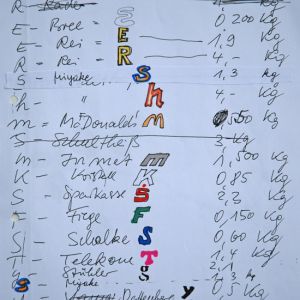 R - Rader 1 Kg
E - Bree - S 0 200 Kg
E - Rei - E 1,9 Kg
R - Rei - R 4,- Kg
S - Miyake S 1,3 Kg
h - " h 4,- Kg
m - McDonald's m 0,550 Kg
S - Schultheiß 3 Kg
M - Inmet m 1,500 Kg
K - Kristall K 0,85 Kg
S - Sparkasse Š 2,2 Kg
F - Fiege F 0,150 Kg
S - Schalke S 0,60 Kg
T - Telekom T 1,4 Kg
Ströhler g 2,1 Kg
S Miyake
Dallenberg y Kg